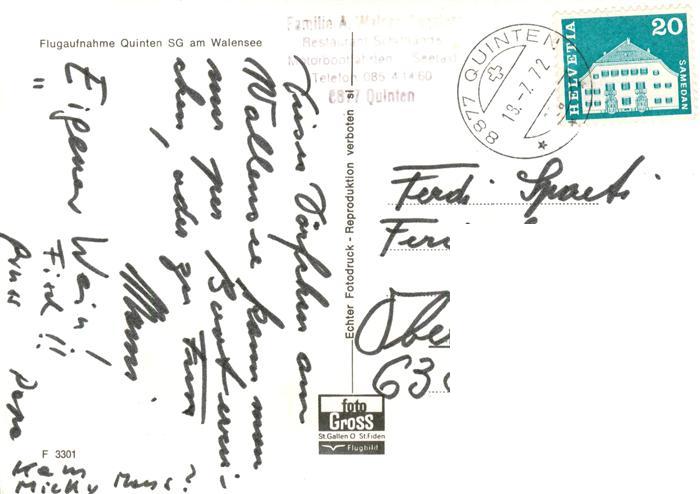 Flugaufnahme Quinten SG am Walensee
Familie
Restaurant
Motorbootfahrten Seetaxi
Telefon 085 4 14 60
8877 Quinten
8877 QUINTEN
18.-7.72
HELVETIA
20
SAMEDAN
Dieses Dörfchen am
Wallensee kann man
nur per Boot errei-
chen, oder zu Fuss
Mami
Eigener Wein!
" Fisch !!
Gruss Papa
Kein
Micky Maus?
Echter Fotodruck - Reproduktion verboten
Ferdi Spaeti
foto
Gross
St.Gallen O St.Fiden
Flugbild
F 3301